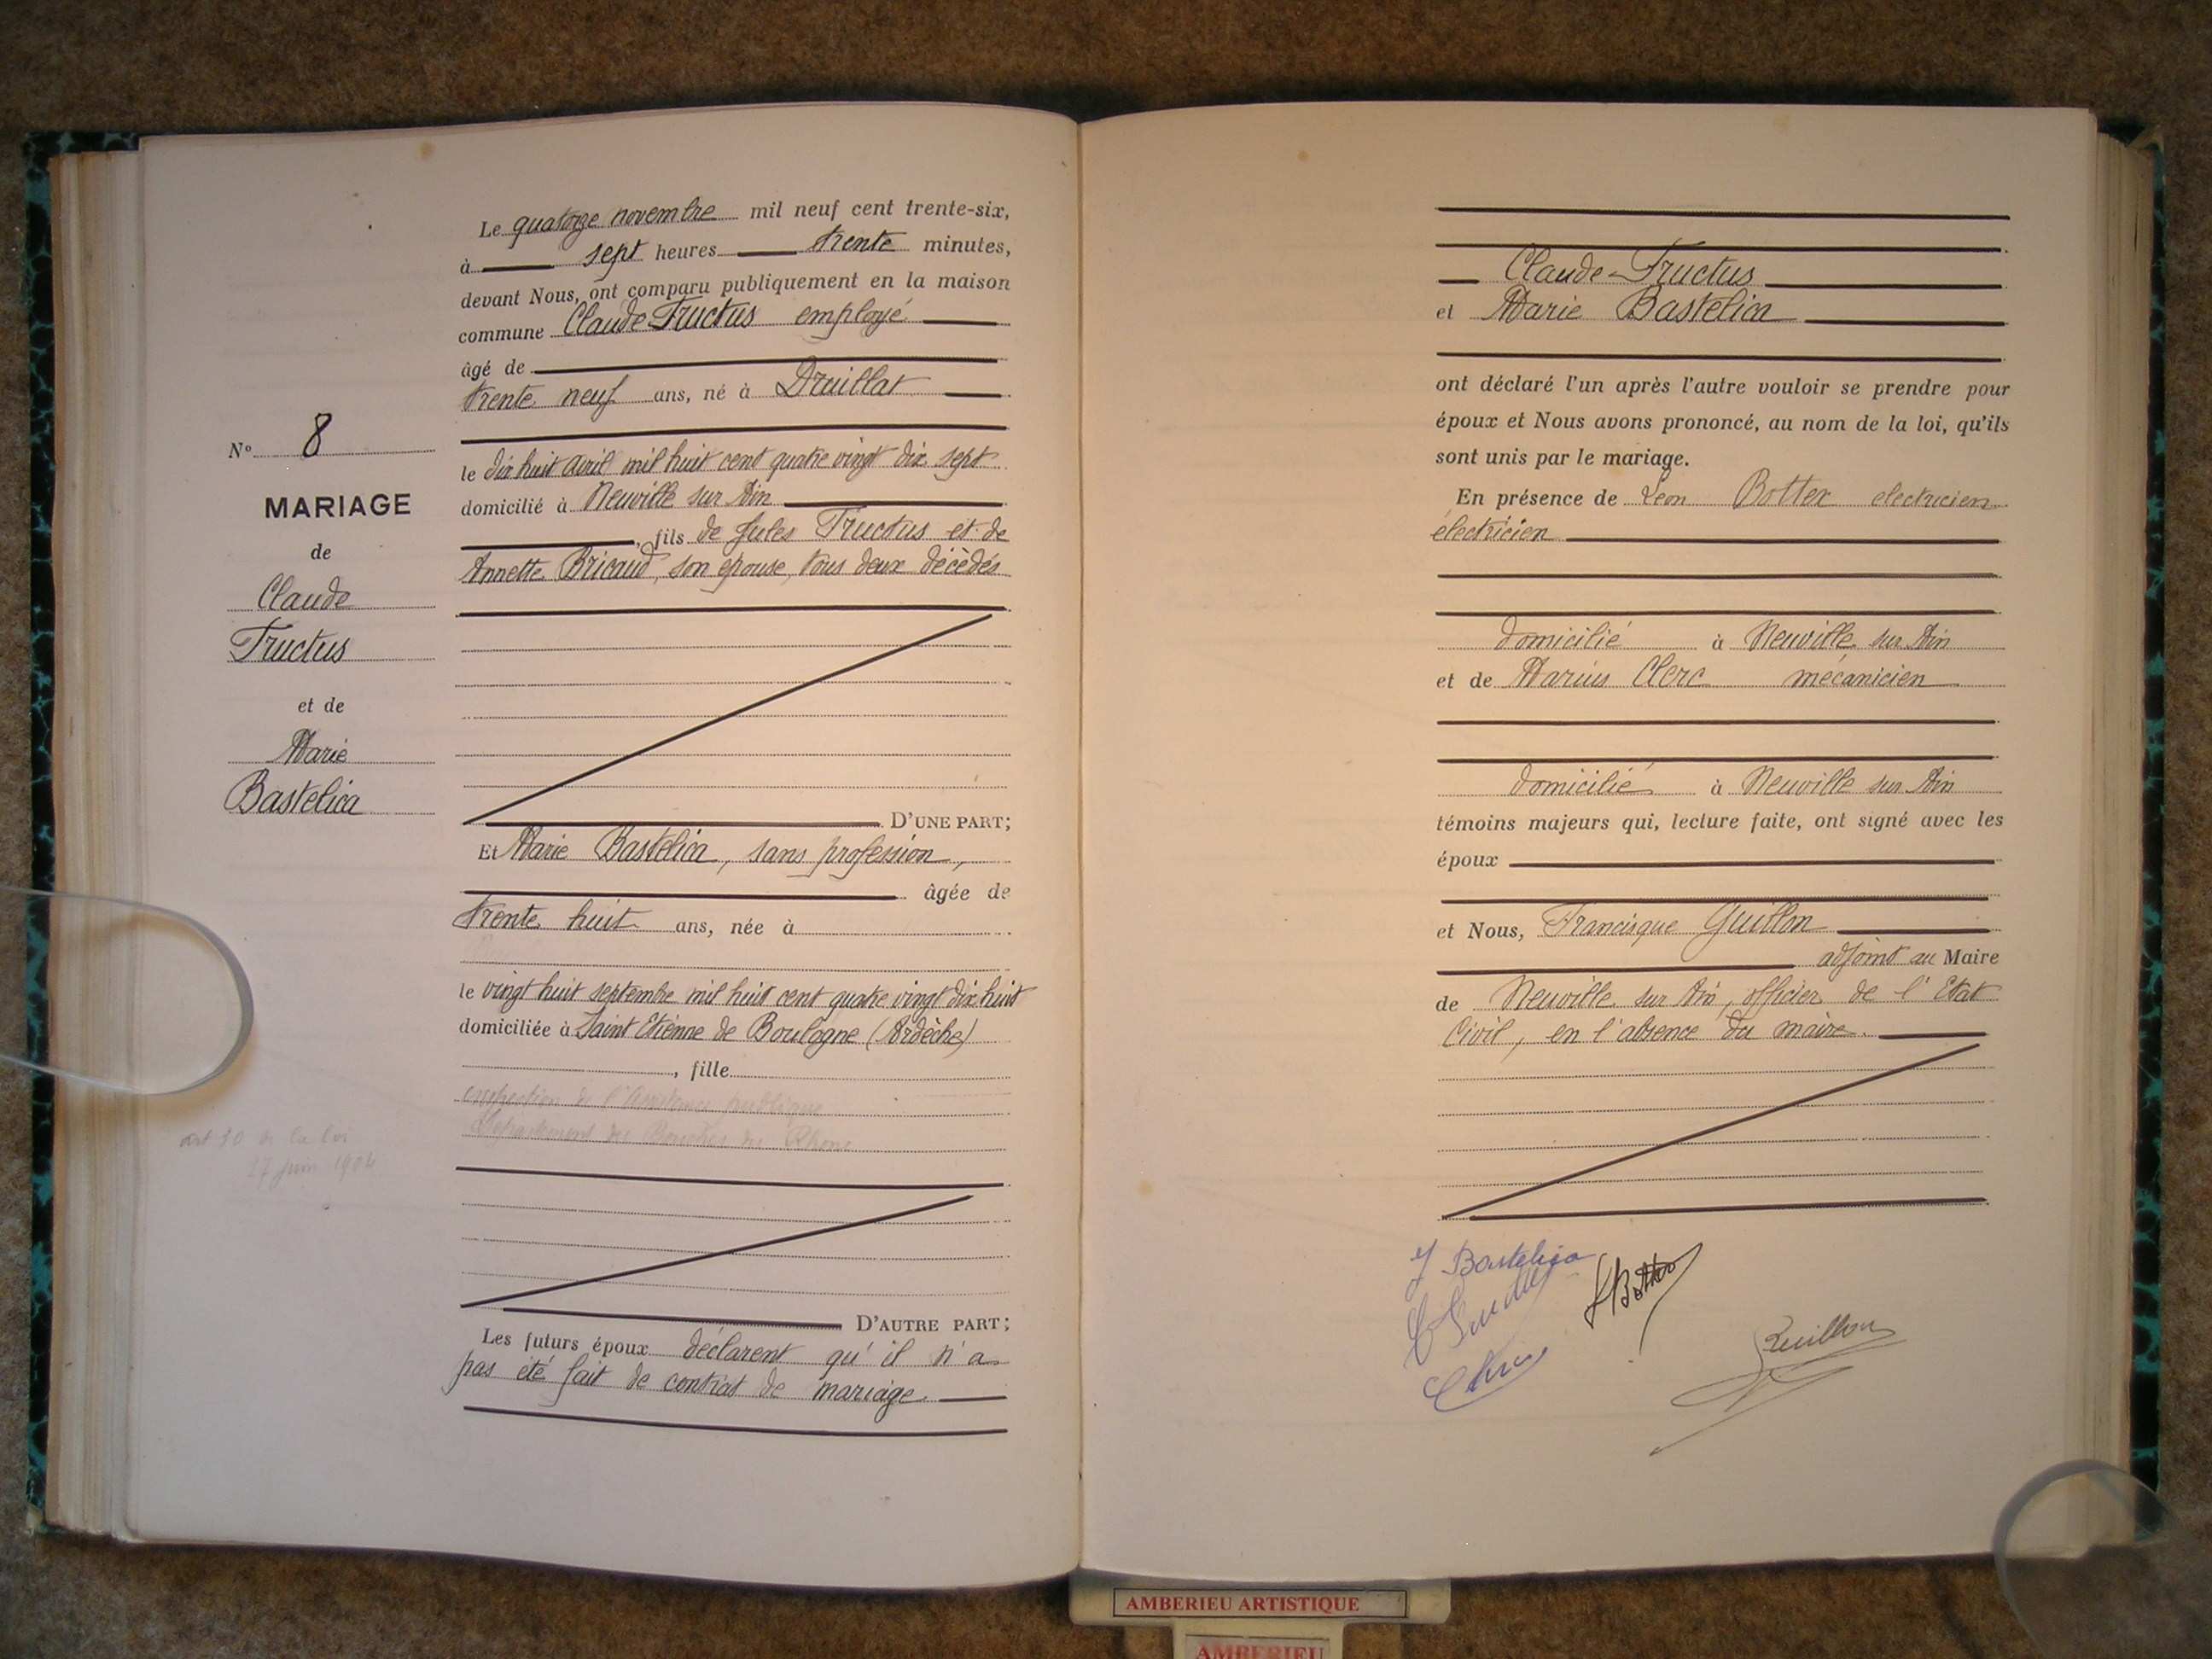 Le quatorze novembre mil neuf cent trente-six,
à sept heures trente minutes,
devant Nous, ont comparu publiquement en la maison
commune Claude Fructus employé
âgé de
trente neuf ans, né à Druillat
le dix huit avril mil huit cent quatre vingt dix sept
domicilié à Neuville sur Ain
, fils de Jules Fructus et de
Annette Bricaud, son épouse, tous deux décédés
D'UNE PART;
Et Marie Bastelica, sans profession,
âgée de
trente huit ans, née à
le vingt huit septembre mil huit cent quatre vingt dix huit
domiciliée à Saint Etienne de Boulogne (Ardèche)
, fille
inspection de l'Assistance publique
Département des Bouches du Rhône
D'AUTRE PART;
Les futurs époux déclarent qu'il n'a
pas été fait de contrat de mariage.
N° 8
MARIAGE
de
Claude
Fructus
et de
Marie
Bastelica
de la loi
27 juin 1904
Claude Fructus
et Marie Bastelica
ont déclaré l'un après l'autre vouloir se prendre pour
époux et Nous avons prononcé, au nom de la loi, qu'ils
sont unis par le mariage.
En présence de Léon Botter electricien
électricien
domicilié à Neuville sur Ain
et de Marius Clerc mécanicien
domicilié à Neuville sur Ain
témoins majeurs qui, lecture faite, ont signé avec les
époux
et Nous, Francisque Guillon
adjoint au Maire
de Neuville sur Ain, officier de l'Etat
Civil, en l'absence du maire.
Bastelica
LBotter
Guillon
AMBERIEU ARTISTIQUE
AMBERIEU